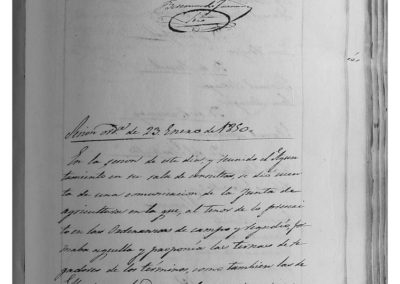 Sesion ord.ª de 23 Enero de 1850.
En la sesion de este dia, y reunido el Ayun
tamiento en su sala de consultas, se dió cuen
ta de una comunicacion de la Junta de
agricultura en la que, al tenor de lo prescri
to en las Ordenanzas de campo y seguidas, for
maba aquella y proponia las ternas de re
gadores de los terminos, como tambien las de